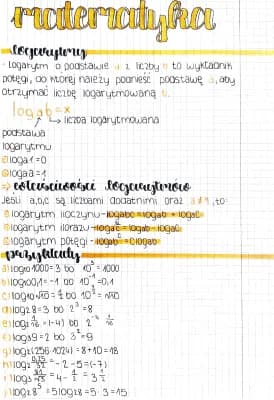 matematyka
logarytmy
- logarytm o podstawie a z liczby b to wykładnik
potęgi, do której należy podnieść podstawę a, aby
otrzymać liczbę logarytmowaną b.
logab = x
↳ liczba logarytmowana
podstawa
logarytmu
loga1=0
logaa=1
=> właściwości logarytmów
Jeśli a,b,c są liczbami dodatnimi oraz a≠1, to:
logarytm iloczynu - logabc = logab + logac
logarytm ilorazu - loga b/c = logab - logac
logarytm potęgi - logab^c = clogab
przykłady
a) log1000=3 bo 10³=1000
b) log0,1=-1 bo 10⁻¹=0,1
c) log√10=1/2 bo 10^1/2=√10
d) log28=3 bo 2³=8
e) log2 1/16=(-4) bo 2⁻⁴ 1/16
f) log39=2 bo 3²=9
g) log2(256·1024)=8+10=18
h) log2 = -2-5=(-7)
i) log3 = 4-1/2=3 1/2
j) log28⁵=5log28=5·3=15